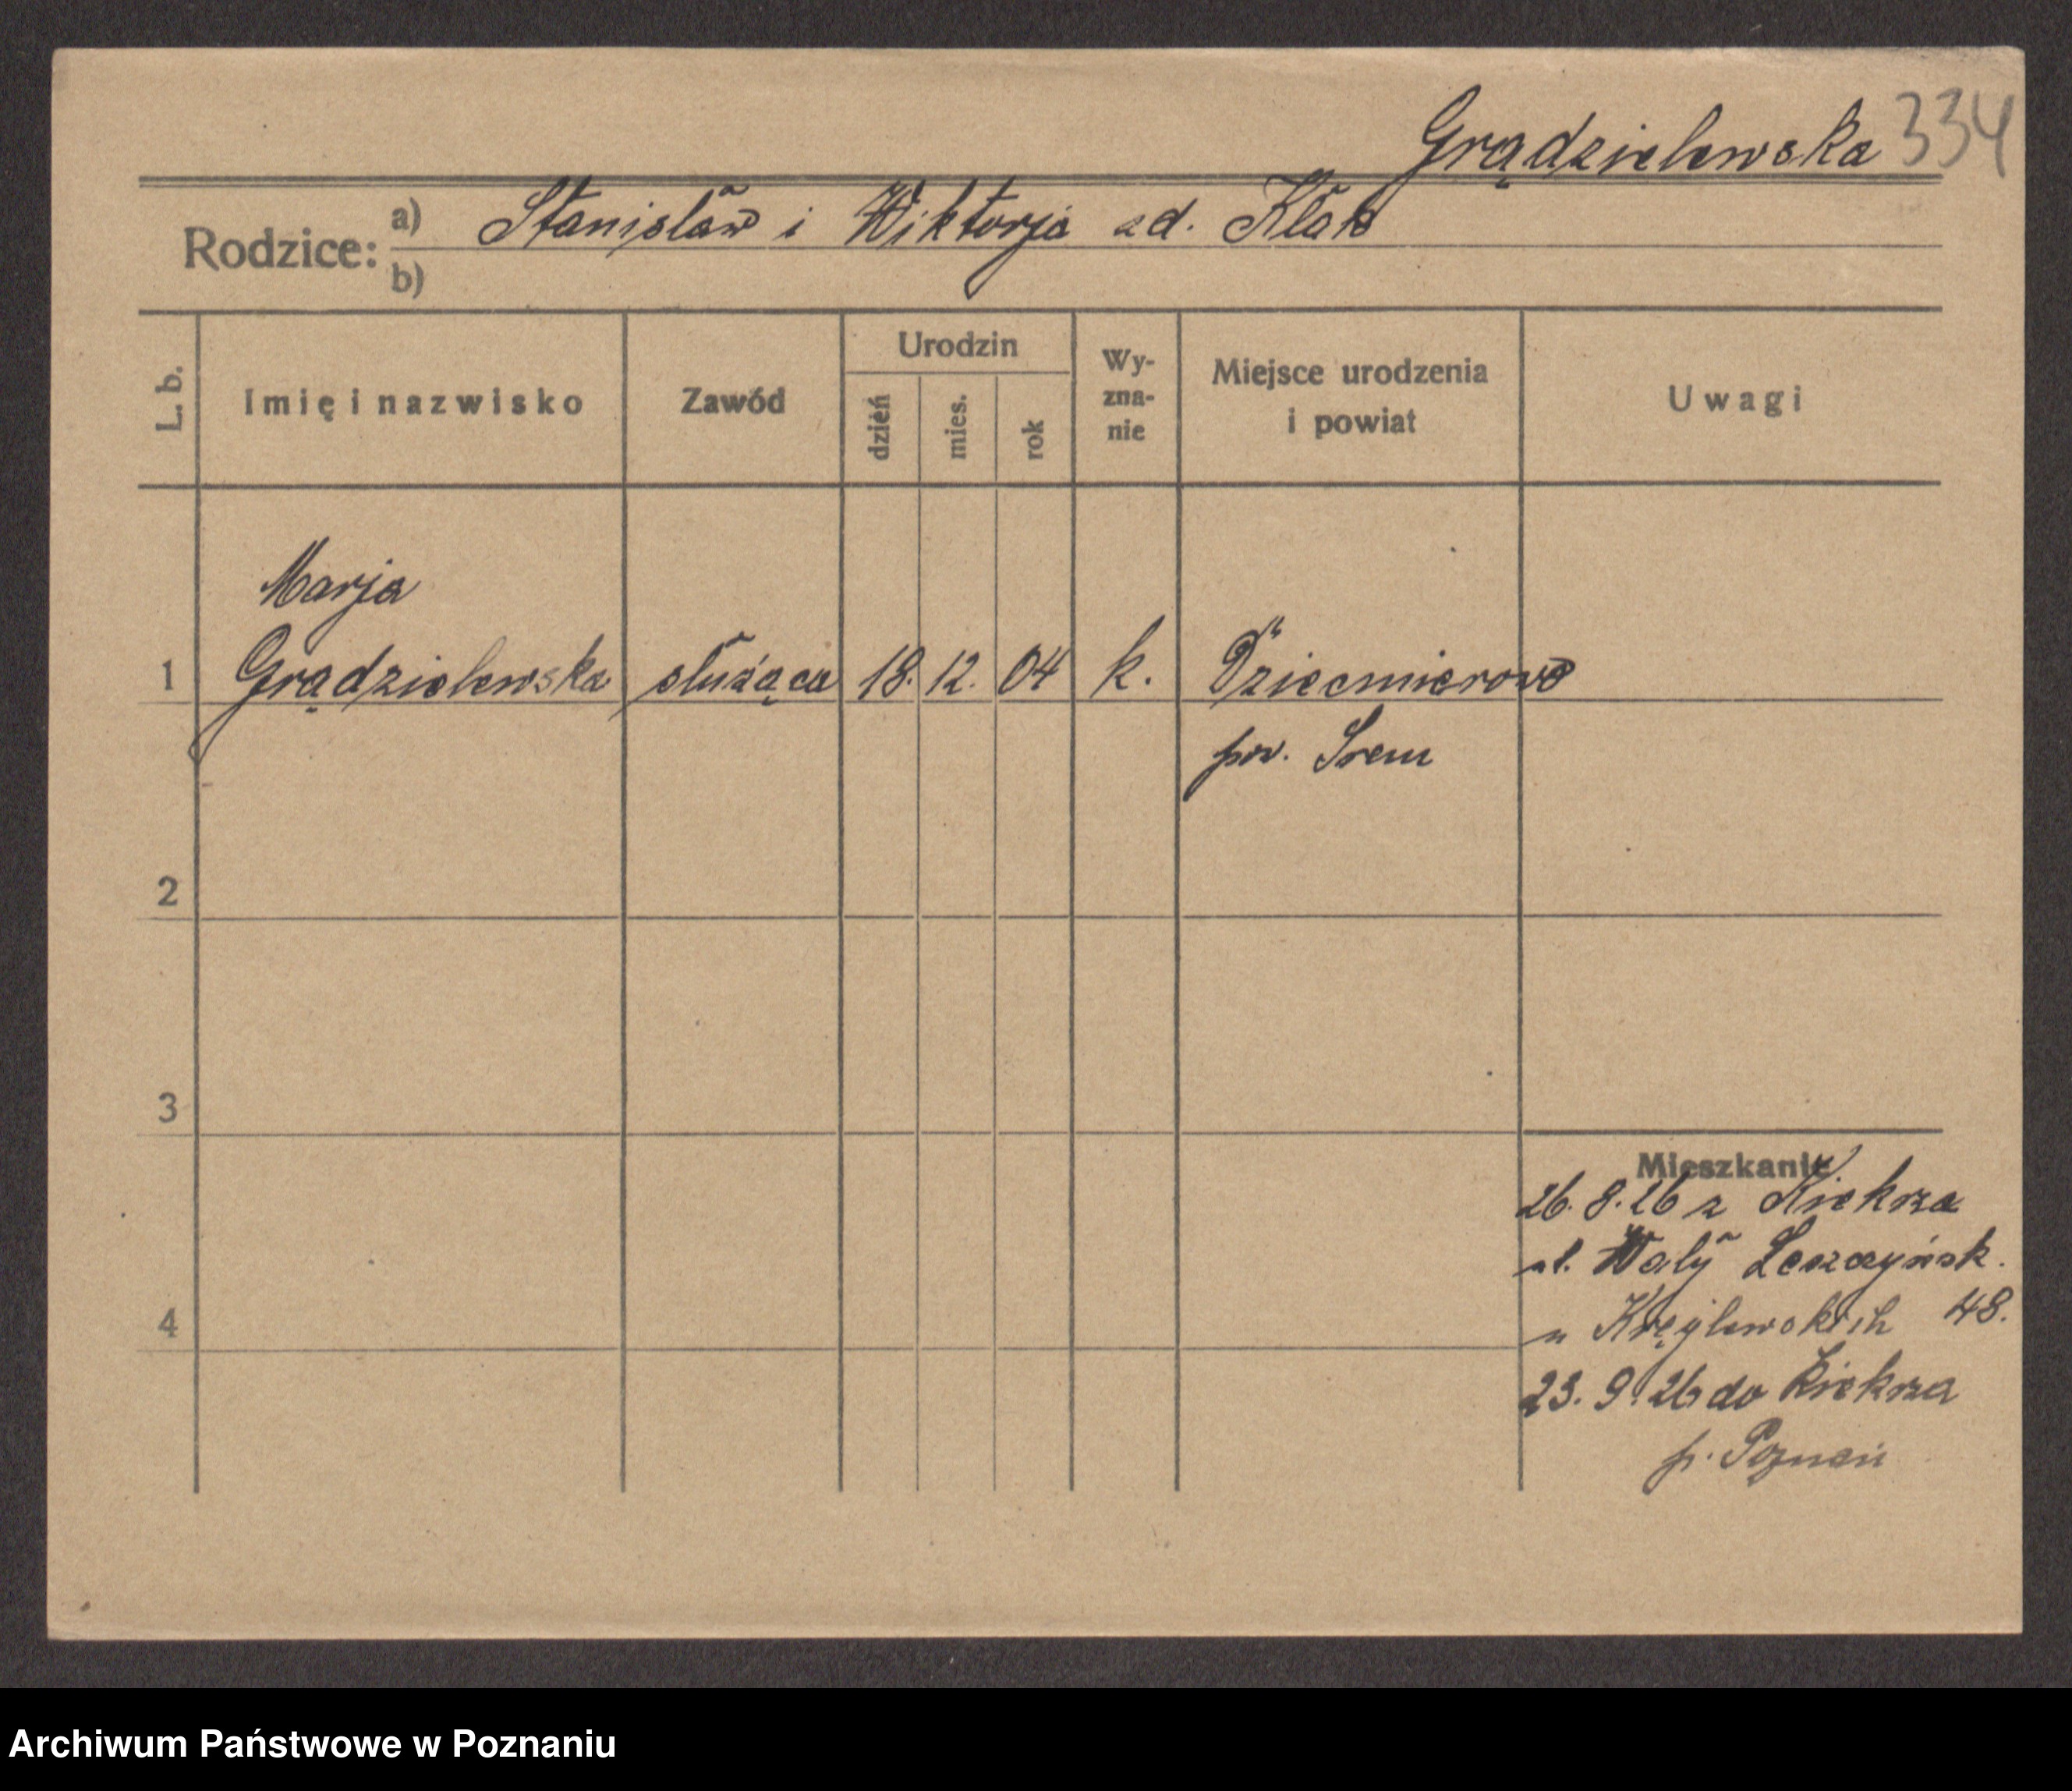 Grądzielewska 334
Rodzice: a) Stanisław i Wiktorja zd. Kłak
b)
L. b. Imię i nazwisko Zawód Urodzin dzień mies. rok Wy-zna-nie Miejsce urodzenia i powiat Uwagi
Marja
1 Grądzielewska służąca 18. 12. 04 k. Dziećmierowo
pow. Śrem
2
3
Mieszkanie
26. 8. 26 z Kiekrza
ul. Wały Leszczyńsk.
4 u Kręglewskich 48.
23. 9. 26 do Kiekrza
p. Poznań
Archiwum Państwowe w Poznaniu